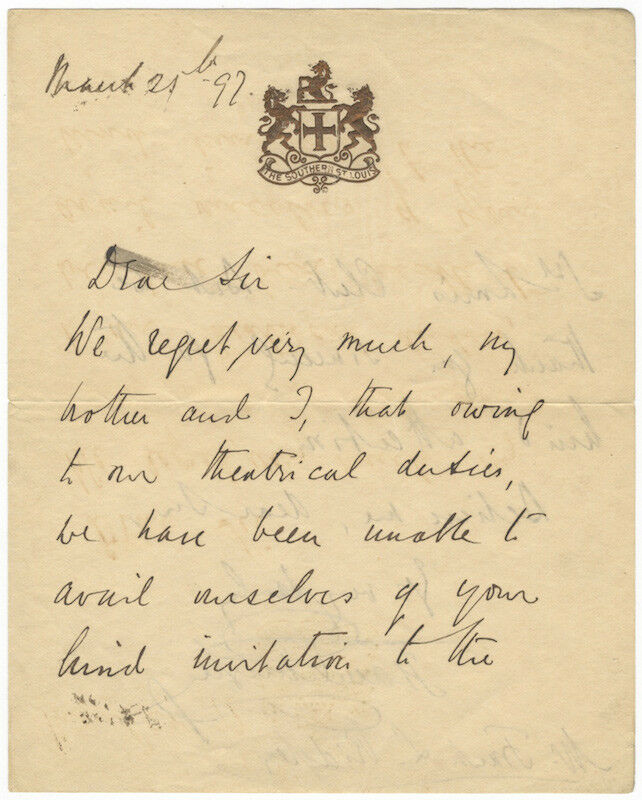 March 25th 97.
THE SOUTHERN ST. LOUIS
Dear Sir
We regret very much, my
brother and I, that owing
to our theatrical duties,
we have been unable to
avail ourselves of your
kind invitation to the